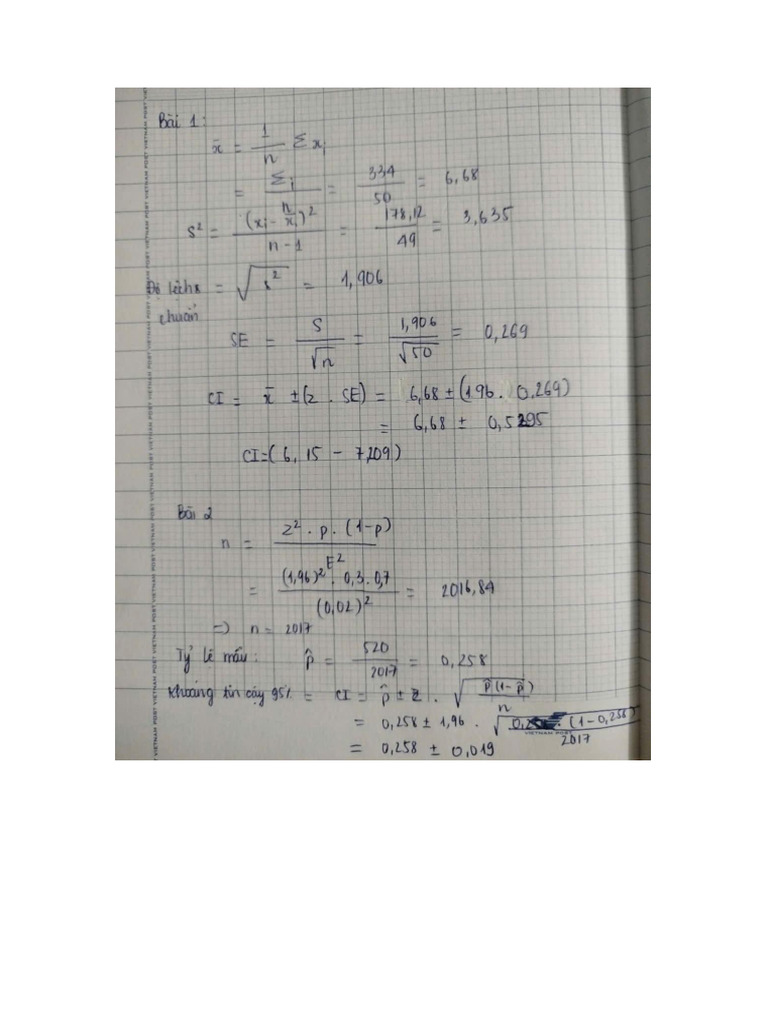 Bài 1:
x̄ = 1/n Σxᵢ
= Σᵢ/n = 334/50 = 6,68
s² = (xᵢ - x̄ᵢ)²/(n-1) = 178,12/49 = 3,635
Độ lệch = √s² = 1,906
chuẩn
SE = S/√n = 1,906/√50 = 0,269
CI = x̄ ±(z . SE) = 6,68 ± (1,96 . 0,269)
= 6,68 ± 0,5295
CI=( 6, 15 - 7,209)
Bài 2
n = Z² . p . (1-p)/E²
= (1,96)² . 0,3 . 0,7/(0,02)² = 2016,84
=> n = 2017
Tỷ lệ mẫu: p̂ = 520/2017 = 0,258
Khoảng tin cậy 95% = CI = p̂ ± z . √(p̂(1-p̂)/n)
= 0,258 ± 1,96 . √(0,258 . (1-0,258)/2017)
= 0,258 ± 0,019
VIETNAM POST